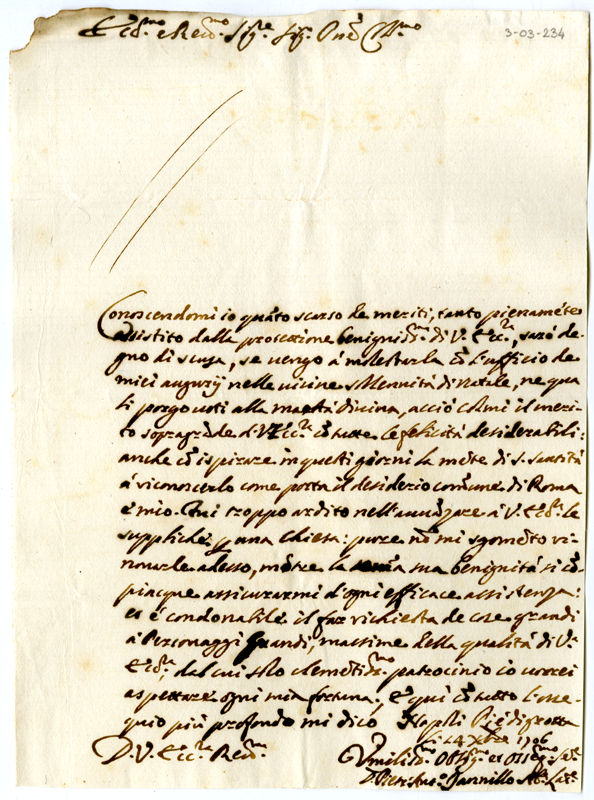 Ecc.mo e Rev.mo Sig.re Sig.r Pne Col.mo
3-03-234
Conoscendomi io quãto scarso de meriti, tanto pienamẽte
assistito dalla protezzione benigniss.ma di V. Ecc.za, sarò de-
gno di scusa, se vengo á molestarla cõ l'ufficio de
miei augurij nelle vicine solennità di Natale, ne qua
li porgo voti alla maestà divina, acciò colmi il meri-
to sopragrãde di V. Ecc.za cõ tutte le felicità desiderabili:
anche cõ ispirare in questi giorni la mẽte di S. Santità
á riconoscerlo come porta il desiderio comune di Roma
e mio. Fui troppo ardito nell'avãzare á V. Ecc.za le
suppliche p una Chiesa: pure nõ mi sgomẽto ri-
novarle adesso, mẽtre la sua benignità si cõ-
piacque assicurarmi d'ogni efficace assistenza:
et é condonabile il far richiesta de cose grandi
á Personaggi grandi, massime della qualità di V.
Ecc.za, dal cui solo clemẽtiss.mo patrocinio io vorrei
aspettare ogni mia fortuna. E qui cõ tutto l'osse-
quio più profondo mi dico Napoli Piedigrotta
li 14 Xbre 1706
D. V. Ecc.za Rev.ma
Umiliss.mo Oblig.mo et Osseq.mo Se.re
D. Ant.o Ab.e Lat.e